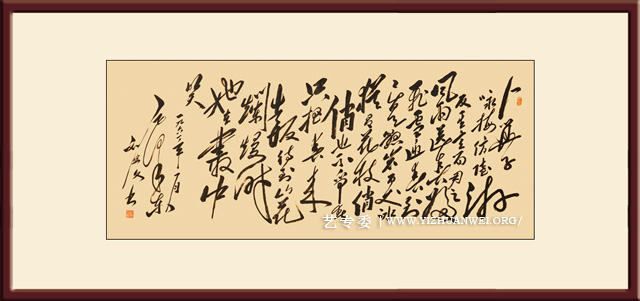 卜算子
咏梅 仿陆
游
反其意而用之
风雨送春归
飞雪迎春到
已是悬崖百丈冰
犹有花枝俏
俏也不争春
只把春来
报 待到山花
烂漫时
她在丛中
笑
毛泽东
书
艺专委 | WWW.YIZHUANWEI.ORG/